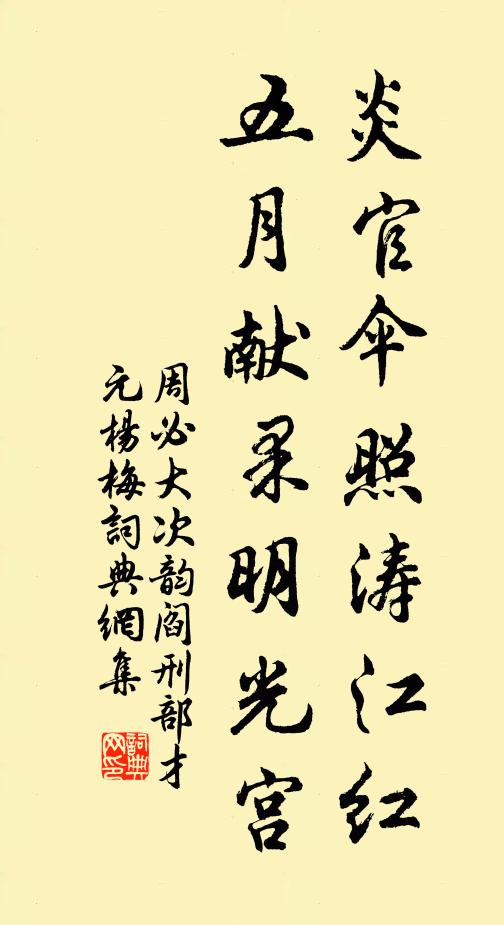 炎官伞照涛江红
五月献果明光宫
周必大次韵阎刑部才
元楊梅詞典網集
詞典网印